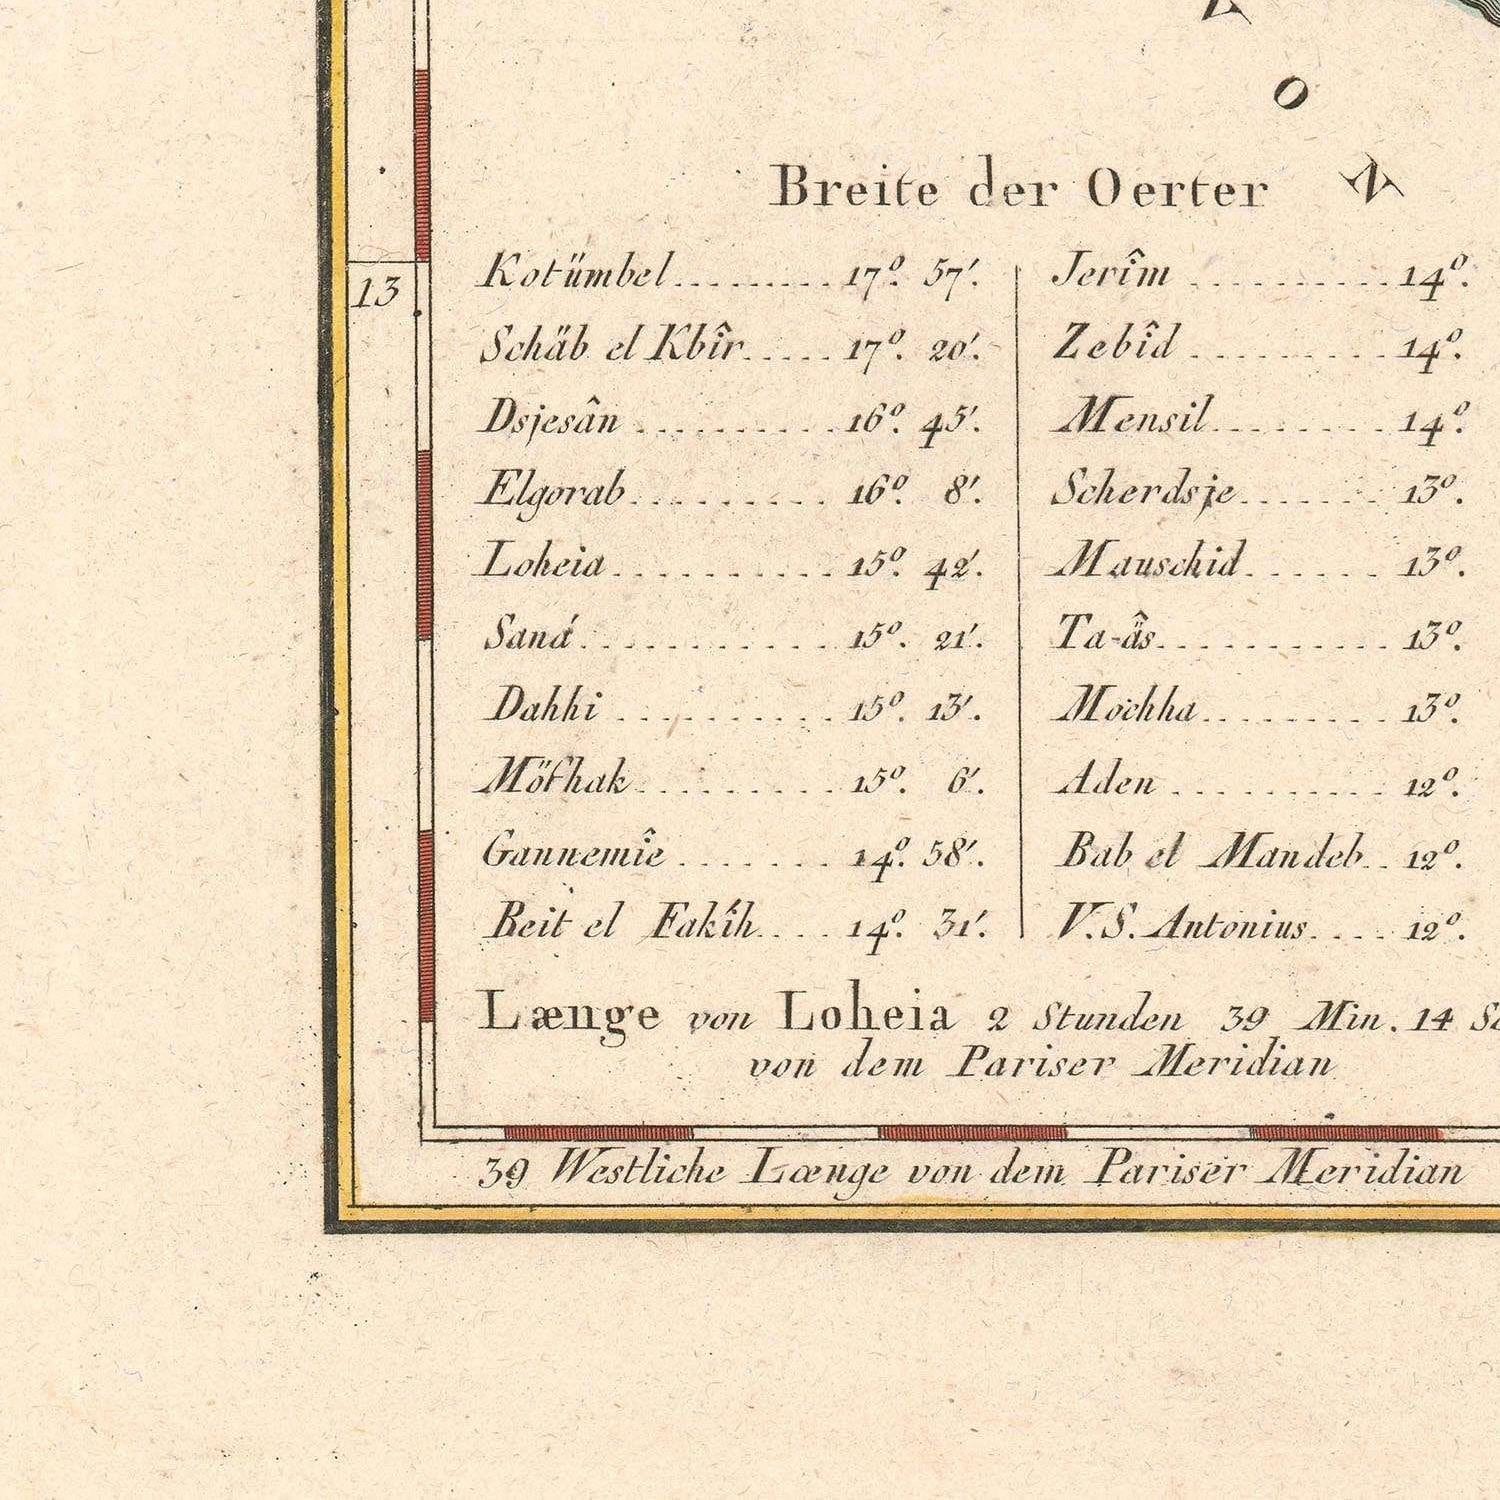 O
N
Breite der Oerter
13
Kotümbel......... 17°. 57'.
Schäb el Kbîr..... 17°. 20'.
Dsjesân .......... 16°. 45'.
Elgorab.......... 16°. 8'.
Loheia.......... 15°. 42'.
Saná............ 15°. 21'.
Dahhi .......... 15°. 13'.
Möfhak......... 15°. 6'.
Gannemîe....... 14°. 58'.
Beit el Fakíh.... 14°. 31'.
Jerîm .......... 14°.
Zebîd ......... 14°.
Mensil........ 14°.
Scherdsje...... 13°.
Mauschid...... 13°.
Ta-âs........... 13°.
Mochha......... 13°.
Aden .......... 12°.
Bab el Mandeb.. 12°.
V.S. Antonius.... 12°.
Længe von Loheia 2 Stunden 39 Min. 14
von dem Pariser Meridian
39 Westliche Længe von dem Pariser Meridian